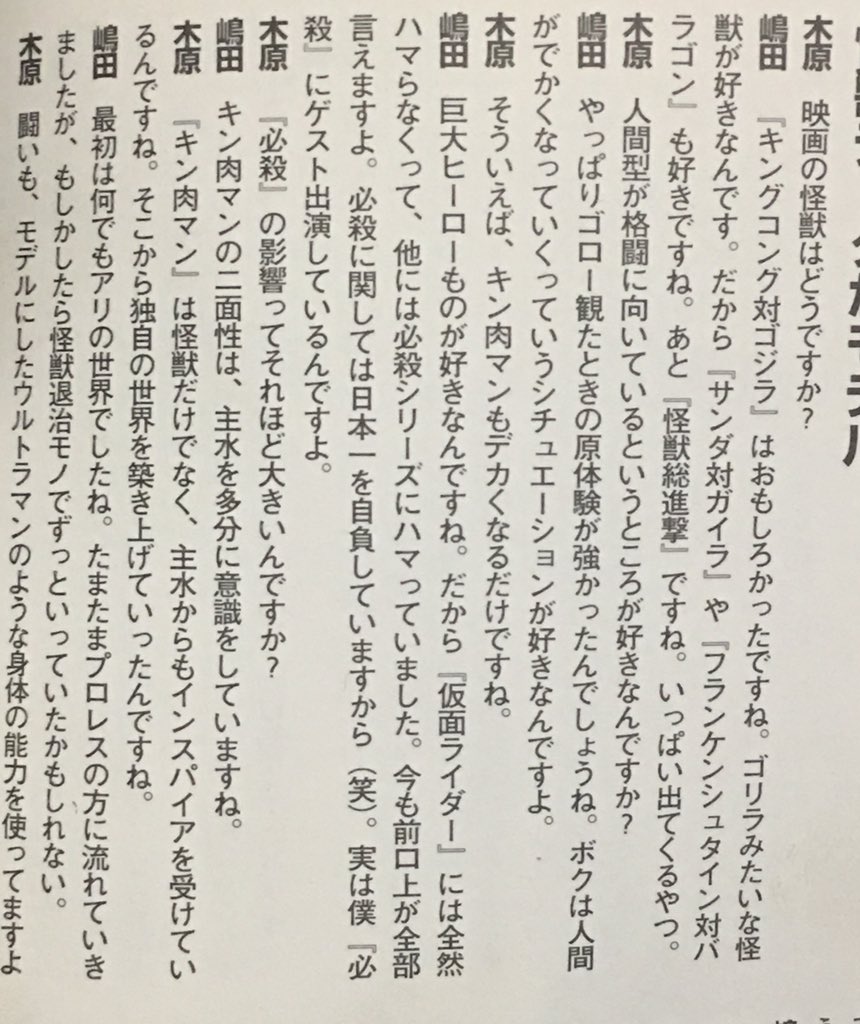 木原　映画の怪獣はどうですか？
嶋田　『キングコング対ゴジラ』はおもしろかったですね。ゴリラみたいな怪
獣が好きなんです。だから『サンダ対ガイラ』や『フランケンシュタイン対バ
ラゴン』も好きですね。あと『怪獣総進撃』ですね。いっぱい出てくるやつ。
木原　人間型が格闘に向いているというところが好きなんですか？
嶋田　やっぱりゴロー観たときの原体験が強かったんでしょうね。ボクは人間
がでかくなっていくっていうシチュエーションが好きなんですよ。
木原　そういえば、キン肉マンもデカくなるだけですね。
嶋田　巨大ヒーローものが好きなんですね。だから『仮面ライダー』には全然
ハマらなくって、他には必殺シリーズにハマっていました。今も前口上が全部
言えますよ。必殺に関しては日本一を自負していますから（笑）。実は僕『必
殺』にゲスト出演しているんですよ。
木原　『必殺』の影響ってそれほど大きいんですか？
嶋田　キン肉マンの二面性は、主水を多分に意識をしていますね。
木原　『キン肉マン』は怪獣だけでなく、主水からもインスパイアを受けてい
るんですね。そこから独自の世界を築き上げていったんですね。
嶋田　最初は何でもアリの世界でしたね。たまたまプロレスの方に流れていき
ましたが、もしかしたら怪獣退治モノでずっといっていたかもしれない。
木原　闘いも、モデルにしたウルトラマンのような身体の能力を使ってますよ